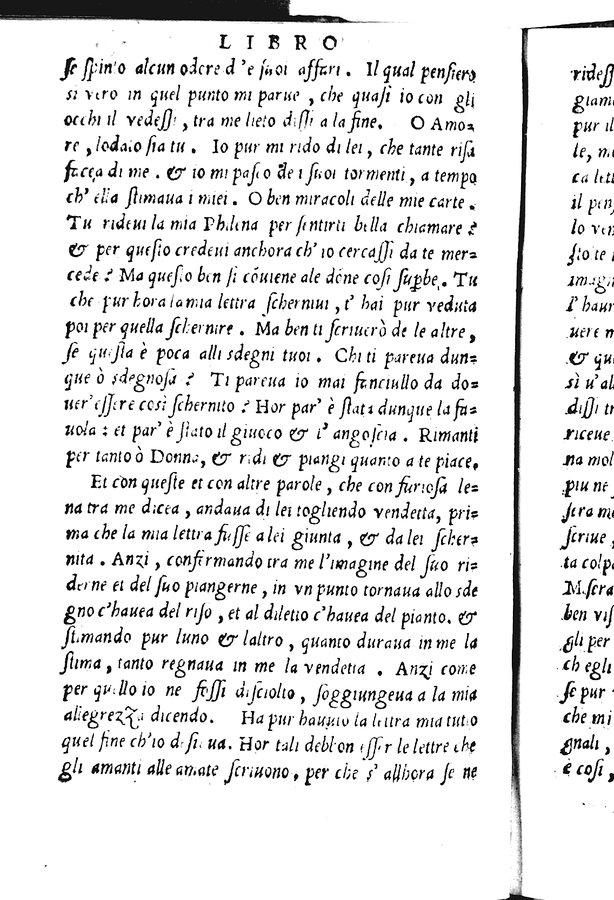 LIBRO
se spinto alcun odore d'e suoi affari. Il qual pensiero
si vero in quel punto mi parue, che quasi io con gli
occhi il vedessi, tra me lieto dissi a la fine. O Amo=
re, lodato sia tu. Io pur mi rido di lei, che tante risa
facea di me. & io mi pasco de i suoi tormenti, a tempo
ch'ella stimaua i miei. O ben miracoli delle mie carte.
Tu rideui la mia Philena per sentirti bella chiamare?
& per questo credeui anchora ch'io cercassi da te mer=
cede? Ma questo ben si cōuiene ale dōne cosi supbe. Tu
che pur hora la mia lettra scherniui, t'hai pur veduta
poi per quella schernire. Ma ben ti scriuerò de le altre,
se questa è poca alli sdegni tuoi. Chi ti pareua dun=
que ò sdegnosa? Ti pareua io mai fanciullo da do=
uer'essere così schernito? Hor par'è stata dunque la fa=
uola: et par'è stato il giuoco & l'angoscia. Rimanti
per tanto ò Donna, & ridi & piangi quanto a te piace.
Et con queste et con altre parole, che con furiosa le=
na tra me dicea, andaua di lei togliendo vendetta, pri=
ma che la mia lettra fusse a lei giunta, & da lei scher=
nita. Anzi, confirmando tra me l'imagine del suo ri=
derne et del suo piangerne, in vn punto tornaua allo sde
gno c'hauea del riso, et al diletto c'hauea del pianto. &
stimando pur luno & laltro, quanto duraua in me la
stima, tanto regnaua in me la vendetta. Anzi come
per quello io ne fossi disciolto, soggiungeua a la mia
allegrezza dicendo. Ha pur hauuto la lettra mia tutto
quel fine ch'io desiaua. Hor tali debbon esser le lettre che
gli amanti alle amate scriuono, per che s'allhora se ne
ridess
giama
pur il
le, m
ca lett
il pens
lo ven
sto te
imagi
l'haur
uere m
& qu
sì u'al
dissi tr
riceue
na mol
piu ne
sera m
scriue,
ta colp
Misera
ben vis
gli per
ch egli
se pur
che mi
gnali,
e cosi,